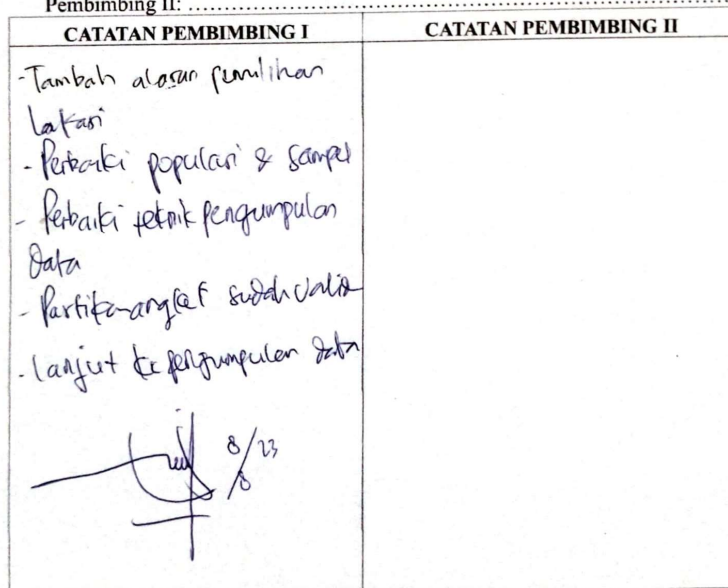 Pembimbing II: ........................................................
CATATAN PEMBIMBING I
CATATAN PEMBIMBING II
-Tambah alasan pemilihan
lokasi
- Perbaiki populasi & sampel
- Perbaiki teknik pengumpulan
Data
- Pastikan angket sudah valid
- lanjut ke pengumpulan data
8/23
8